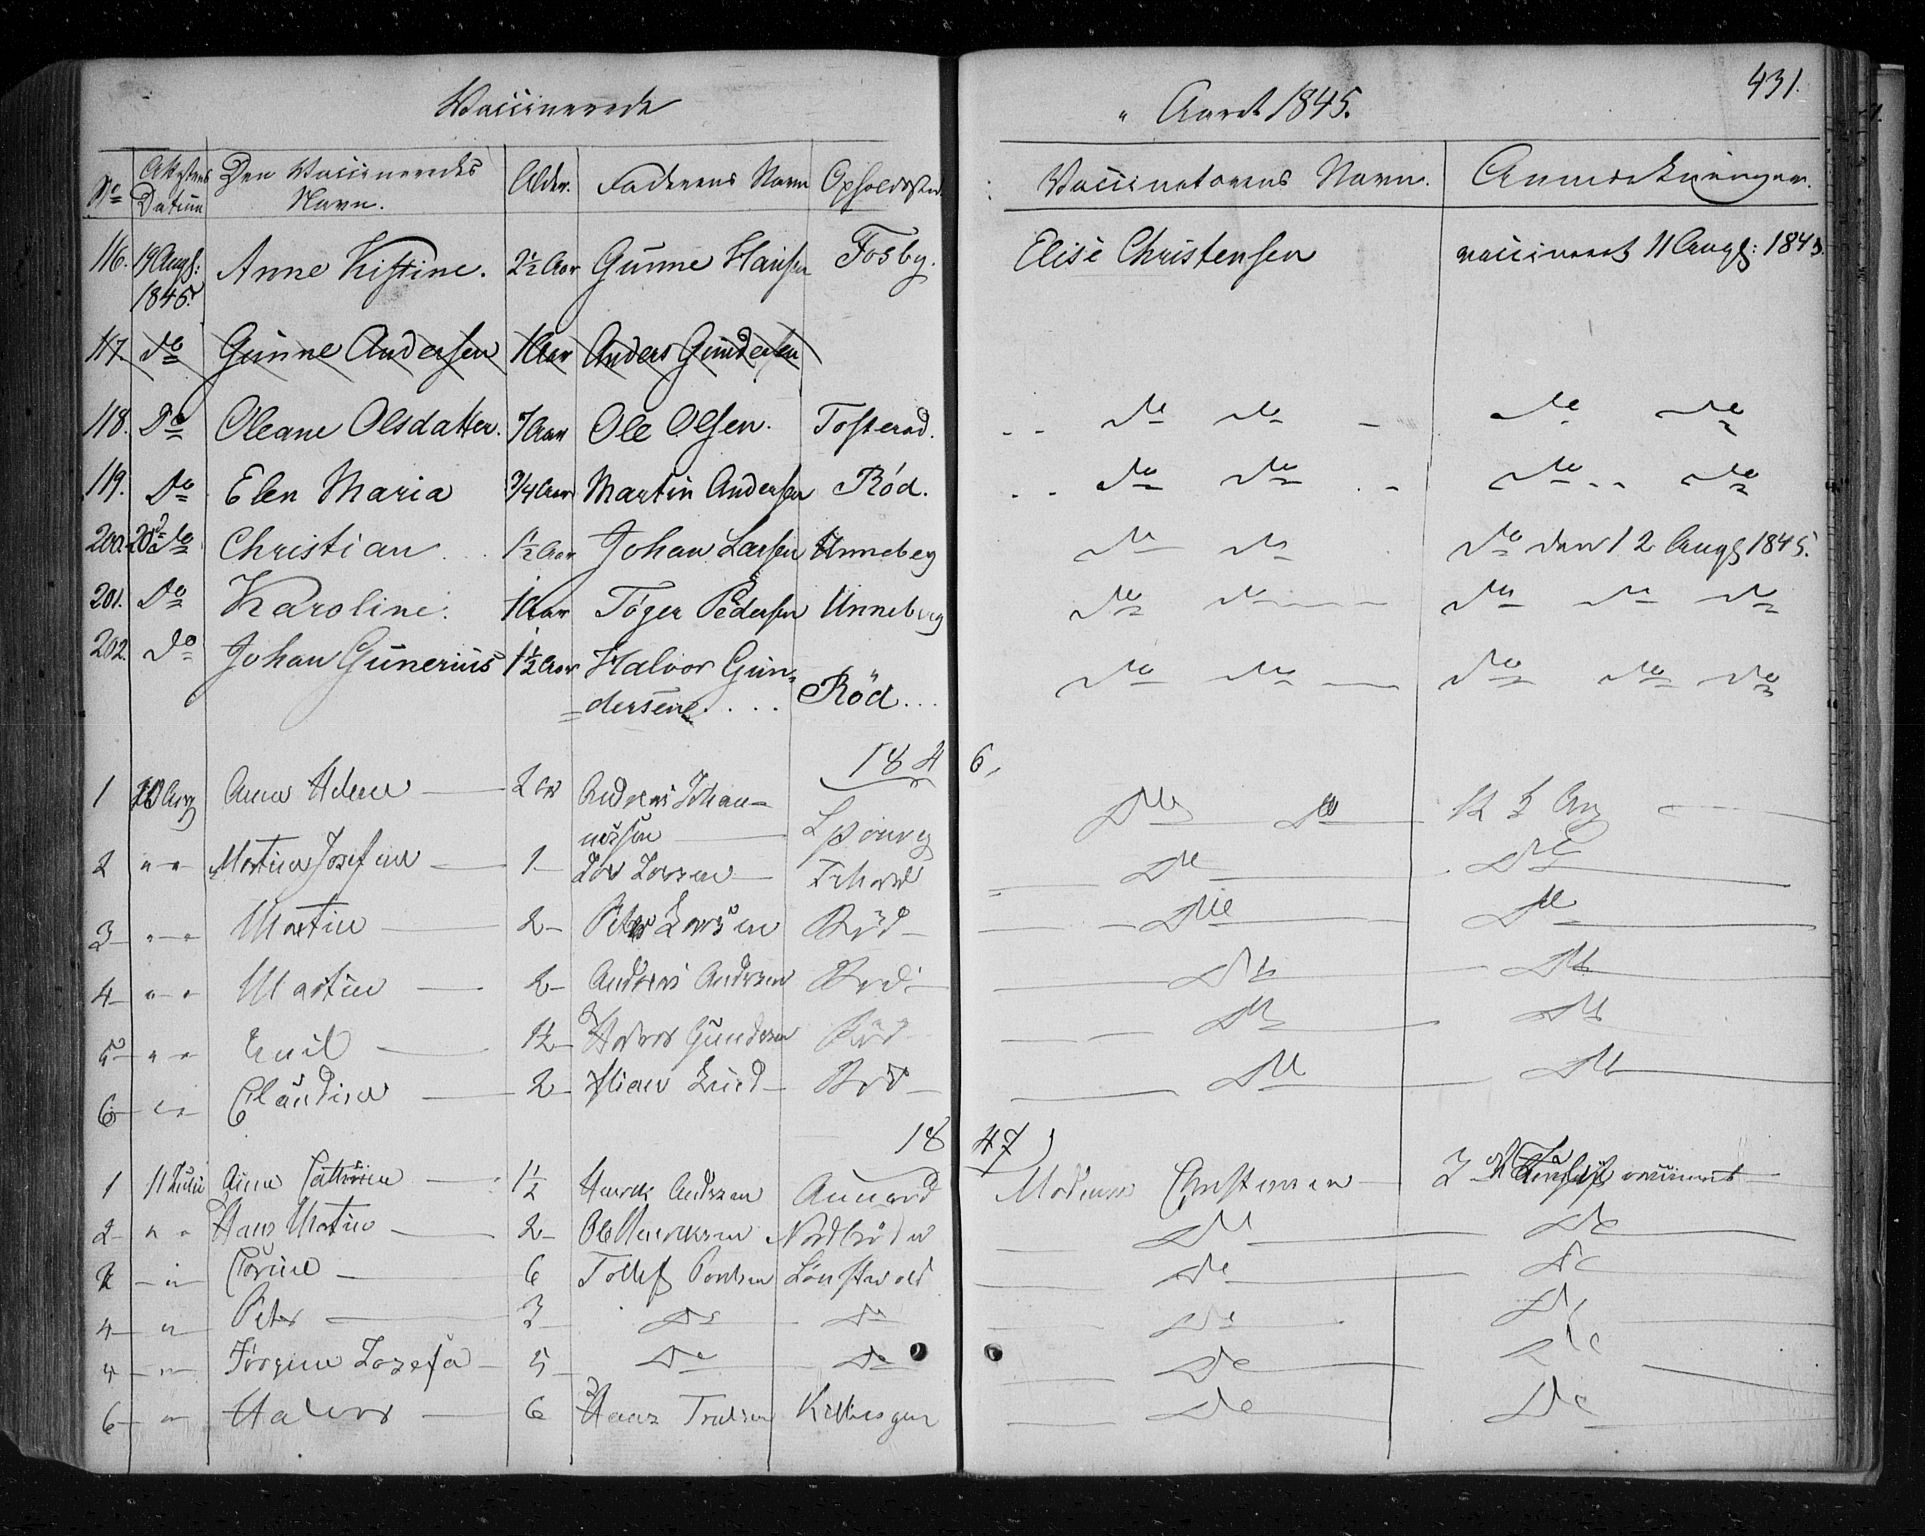 431.
Vaccinerede
" Aaret 1845.
No Attestens Datum Den Vaccineredes Navn. Alder. Faderens Navn Opholdssted. Vaccinatorens Navn. Anmærkninger.
116. 19 Augs: 1845. Anne Kistine. 2½ Aar Gunne Hansen Fosby. Elise Christensen vaccineret 11 Augs: 1845.
117 do Gunne Andersen 1 Aar Anders Gundersen
118. Do Oleane Olsdatter. 7 Aar Ole Olsen. Tofterød. do do do do
119. Do Elen Maria 3/4 Aar Martin Andersen Röd. do do do do
200. 20 do Christian 1½ Aar Johan Larsen Unneberg do do do den 12 Augs 1845.
201. Do Karoline. 1 Aar Töger Pedersen Unneberg do do do do do
202. do Johan Gunerius 1½ Aar Halvor Gun-
dersen Röd do do do do do
1846.
1 20 Aug Anna Helene 2 Aar Andreas Johan-
nessen do do 12 Aug
2 " " Martin Josefine 1 Lars Larsen do do
3 " " Martin 2 Peter Larsen Röd do do
4 " " Martin 2 Andreas Andersen Röd do do
5 " " Emil 1½ Halvor Gundersen Röd do do
6 " " Claudine 2 Lund Röd do do
1847
1 11 Juli Anna Cathrine 1½ Henrik Andersen Christensen vaccineret
2 " " Hans Martin 2 Ole Henriksen do do
2 " Corine 6 Tollef do do
4 " Peter 3 Do Do do do
4 " Jörgine Josefa 5 Do Do do do
6 " Halvor 6 Hans do do